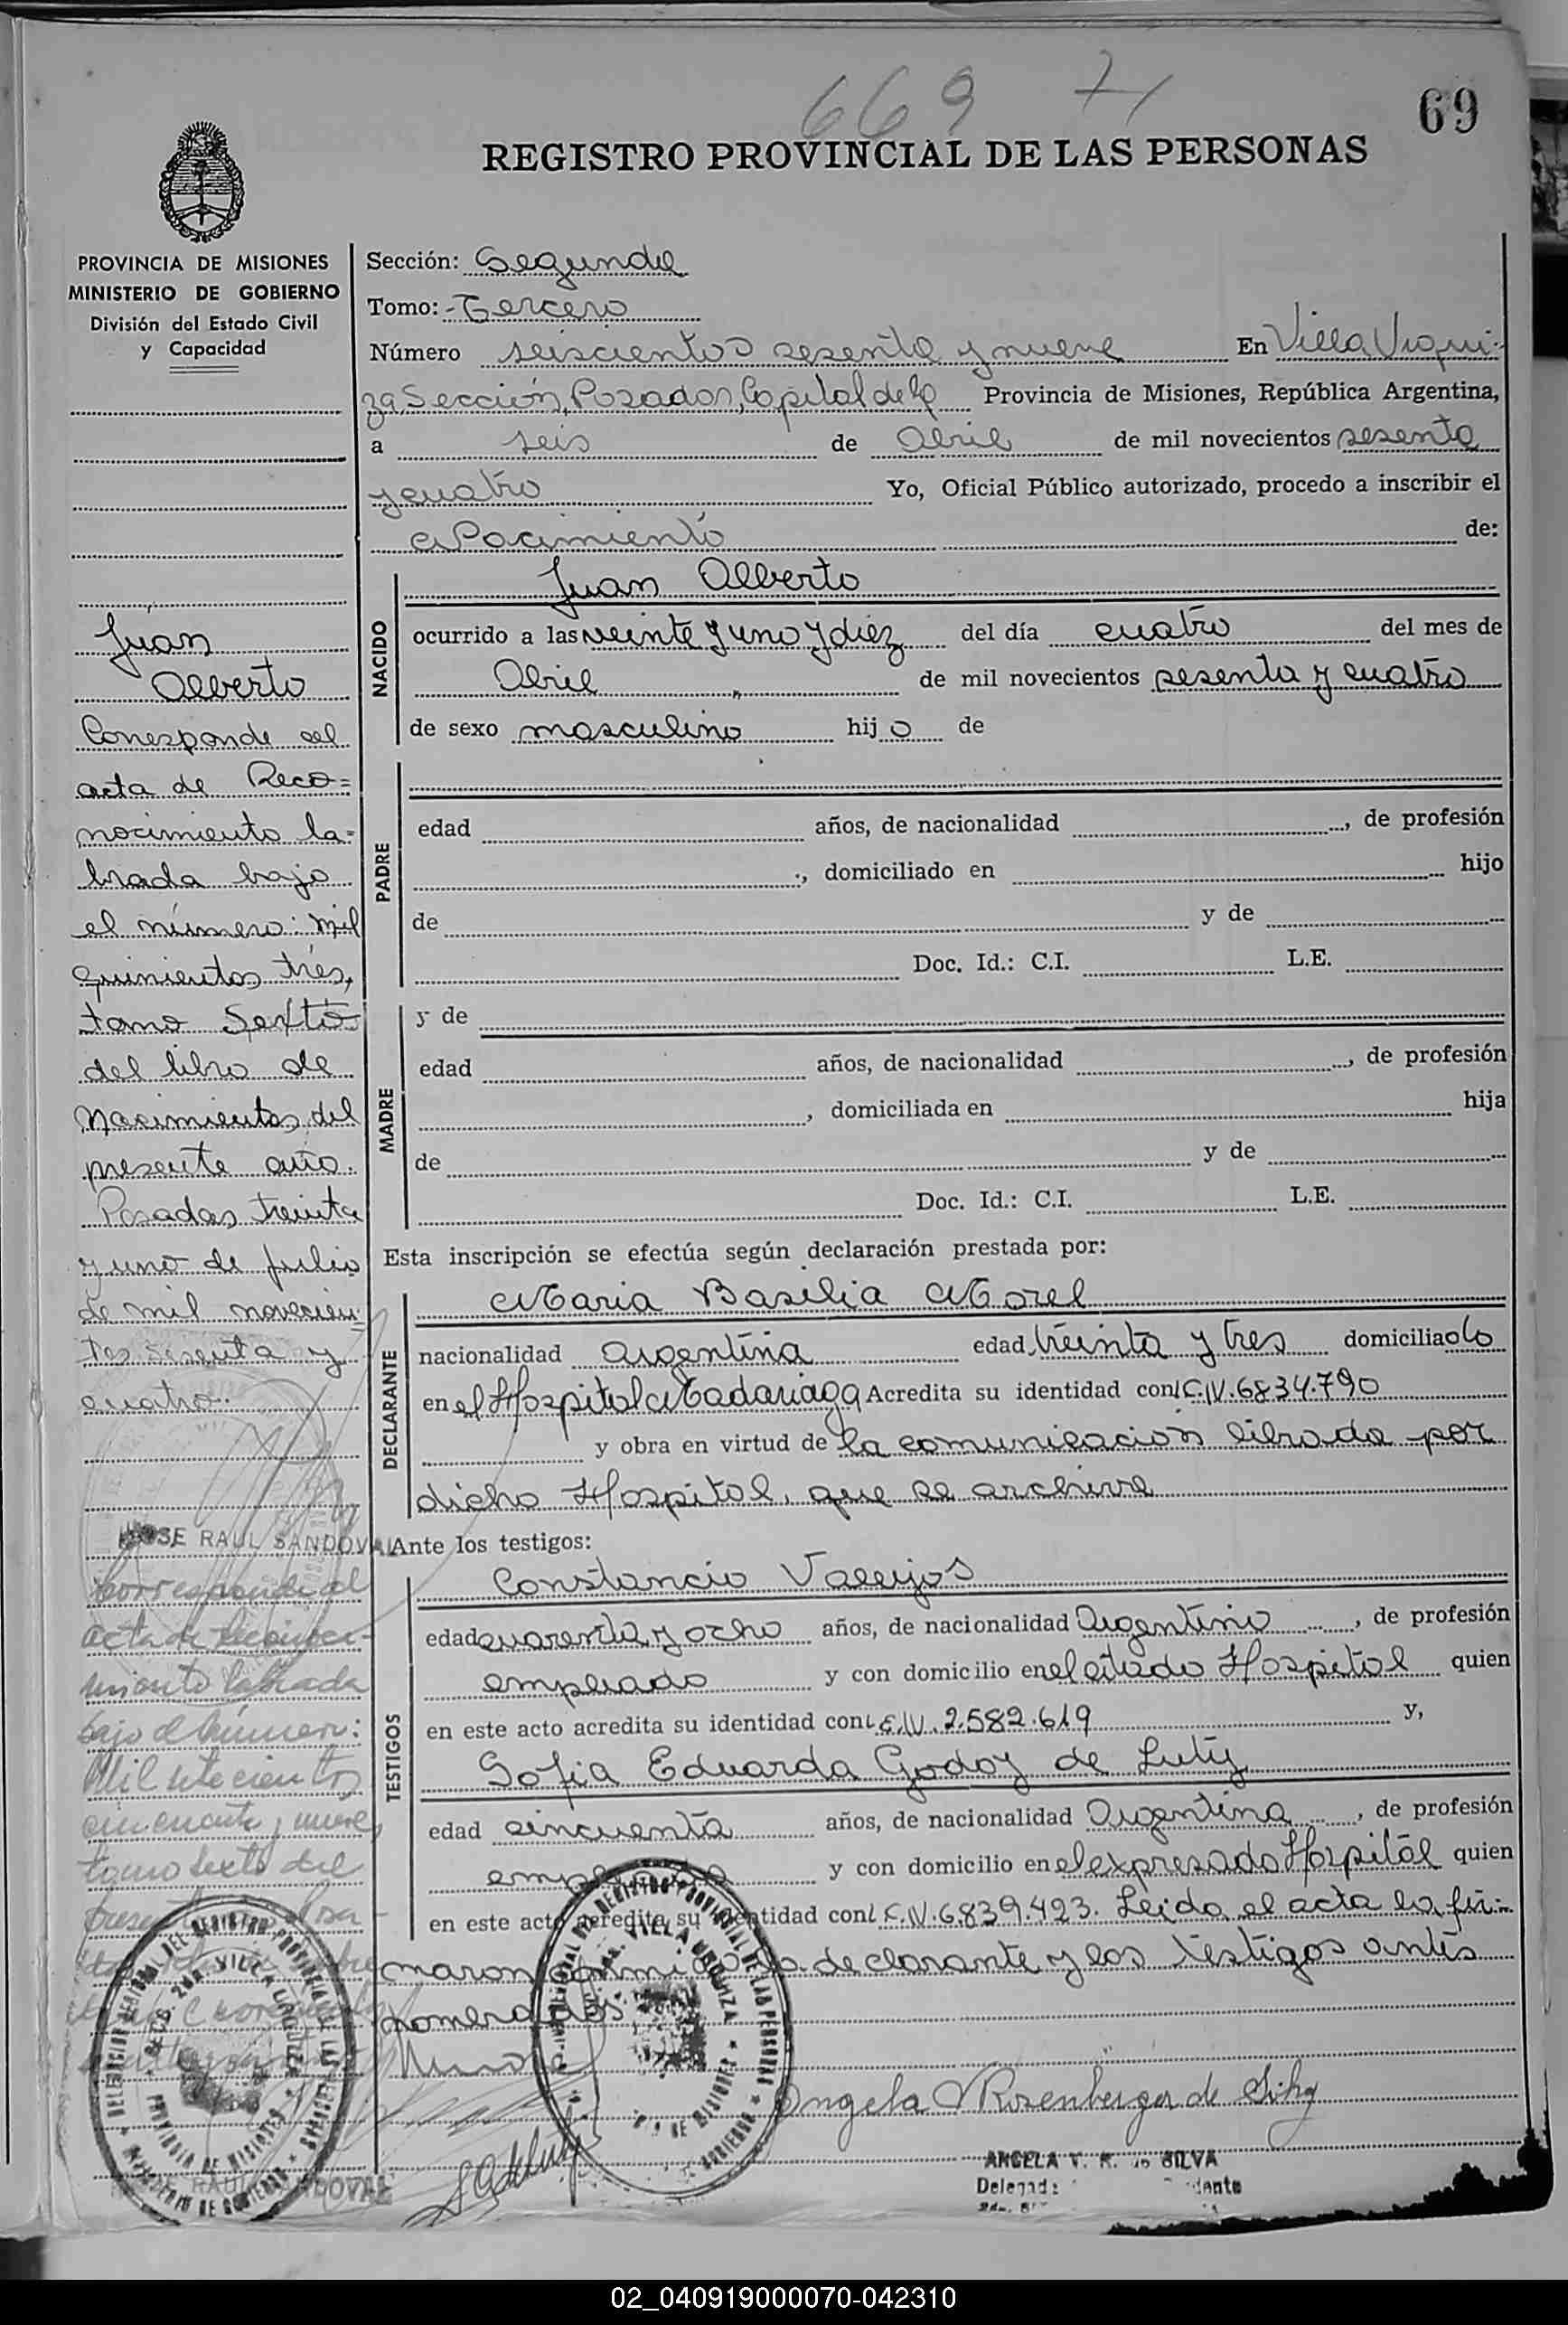 669 71
69
REGISTRO PROVINCIAL DE LAS PERSONAS
PROVINCIA DE MISIONES
MINISTERIO DE GOBIERNO
División del Estado Civil
y Capacidad
Juan
Alberto
Corresponde al
acta de Reco=
nocimiento la=
brada bajo
el número: mil
quinientos tres,
tomo Sexto
del libro de
Nacimientos del
presente año.
Posadas treinta
y uno de julio
de mil novecien=
tos sesenta y
cuatro.
JOSE RAUL SANDOVAL
Corresponde al
acta de Reconoci-
miento labrada
bajo el número:
Mil setecientos
cincuenta y nueve,
tomo sexto del
Sección: Segunda
Tomo: Tercero
Número seiscientos sesenta y nueve En Villa Urqui-
za Sección, Posadas, Capital de la Provincia de Misiones, República Argentina,
a seis de Abril de mil novecientos sesenta
y cuatro Yo, Oficial Público autorizado, procedo a inscribir el
Nacimiento de:
NACIDO
Juan Alberto
ocurrido a las veinte y uno y diez del día cuatro del mes de
Abril de mil novecientos sesenta y cuatro
de sexo masculino hijo de
PADRE
edad años, de nacionalidad , de profesión
, domiciliado en hijo
de y de
Doc. Id.: C.I. L.E.
MADRE
y de
edad años, de nacionalidad , de profesión
, domiciliada en hija
de y de
Doc. Id.: C.I. L.E.
Esta inscripción se efectúa según declaración prestada por:
DECLARANTE
Maria Basilia Morel
nacionalidad argentina edad treinta y tres domiciliado
en el Hospital Madariaga Acredita su identidad con 6.834.790
y obra en virtud de la comunicación librada por
dicho Hospital, que se archiva
Ante los testigos:
TESTIGOS
Constancio Vallejos
edad cuarenta y ocho años, de nacionalidad Argentino , de profesión
empleado y con domicilio en el citado Hospital quien
en este acto acredita su identidad con 2.582.619 y,
Sofia Eduarda Godoy de Luty
edad cincuenta años, de nacionalidad Argentina , de profesión
empleada y con domicilio en el expresado Hospital quien
en este acto acredita su identidad con 6.839.423. Leida el acta la fir-
maron conmigo la declarante y los testigos antes
nomerados.
Angela V Rosenberger de Silva
ANGELA V. R. de SILVA
DELEGACION SECCIONAL DEL REGISTRO PROVINCIAL DE LAS PERSONAS
SECC. 2da. VILLA URQUIZA
PROVINCIA DE MISIONES
MINISTERIO DE GOBIERNO
RAUL SANDOVAL
02_040919000070-042310